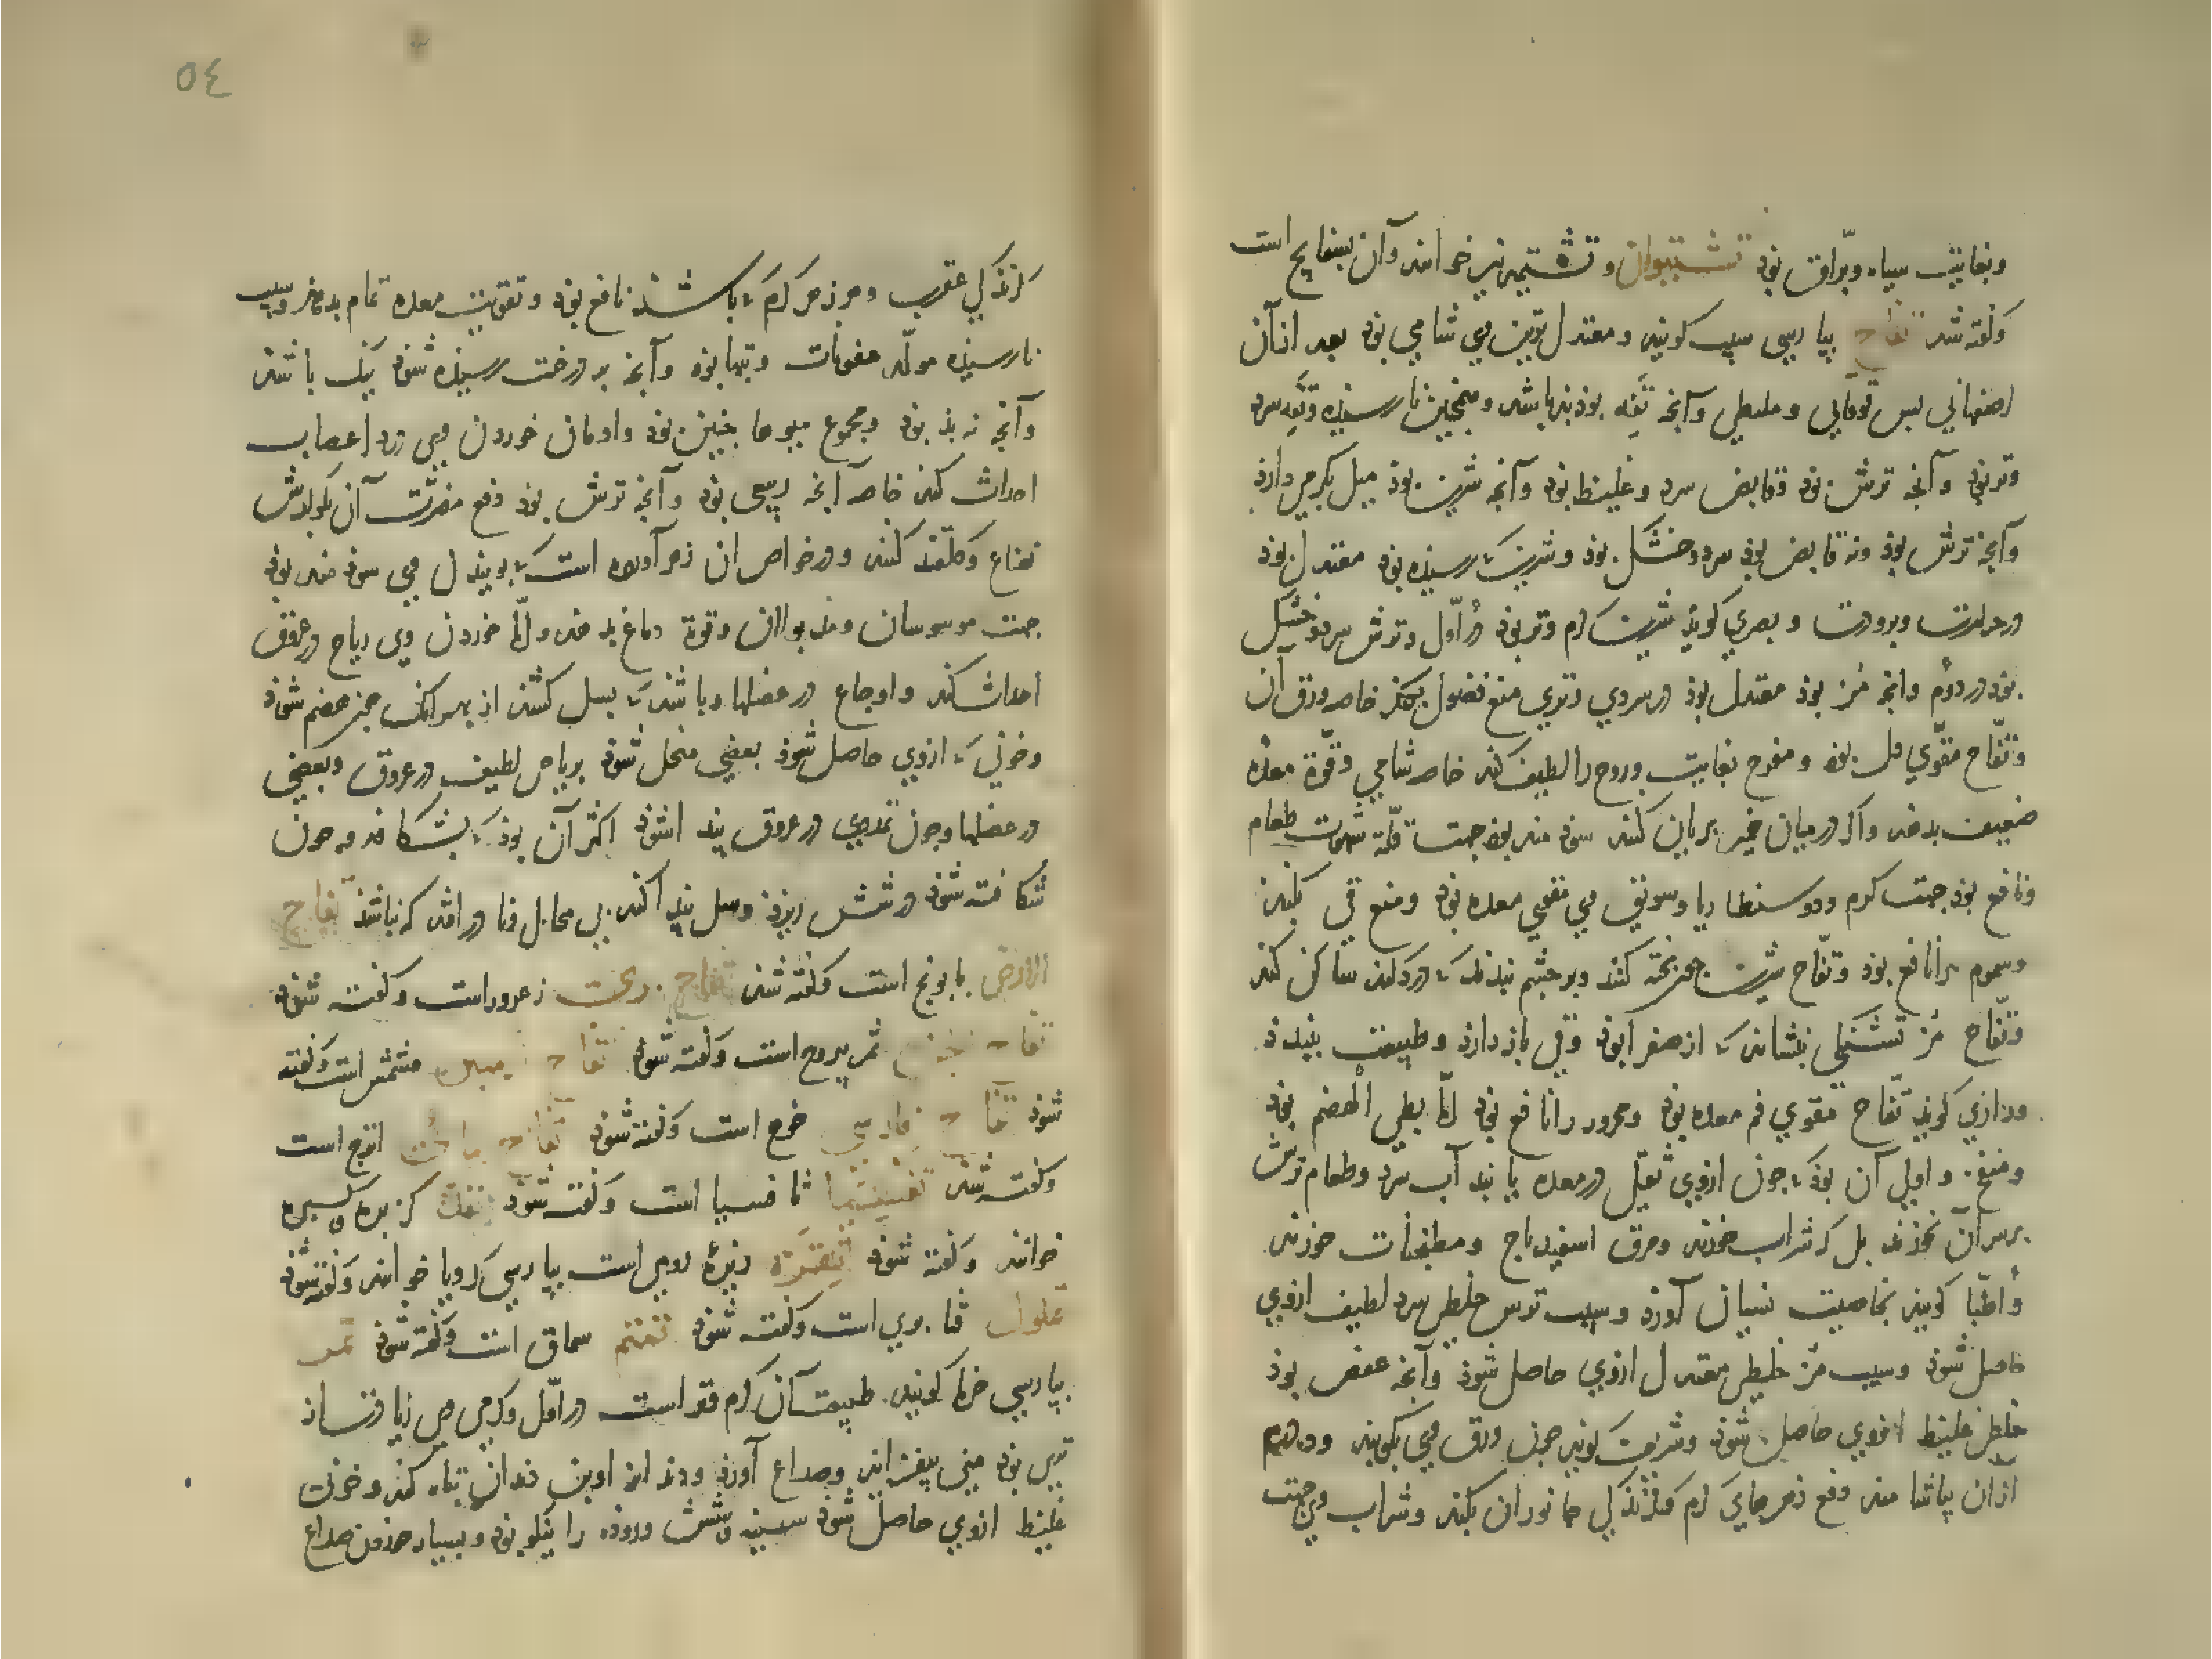 وبغایت سیاه و برّاق بوذ تشتیوان و تشتمیر نیز خوانند وآن بسفایج است
وکفته شد تفاح بپارسی سیب کویند ومعتدل ترین وی شامی بوذ بعد از آن
اصفهانی پس قوقانی و ملیطی وآنجه تفه بوذ بد باشد وهمچنین نارسیذه وتفه سرد
وتر بوذ وآنجه ترش بوذ وقابض سرد وغلیظ بوذ وآنجه شیرین بوذ میل بکرمی دارذ
وآنجه ترش بوذ ونه قابض بوذ سرد وخشک بوذ وشیرین که رسیذه بوذ معتدل بوذ
در حرارت وبرودت وبصری کویذ شیرین کرم وتر بوذ در اوّل وترش سرد وخشک
بوذ در دوم وآنجه مز بوذ معتدل بوذ در سردی وتری منع فضول بکند خاصه ورق آن
وتفّاح مقوّی دل بوذ ومفرح بغایت وروح را لطیف کند خاصه شامی وقوّة معده
ضعیف بدهد واکر در میان خمیر بریان کنند سوذمند بوذ جهت قلّة شهوت طعام
ونافع بوذ جهت کرم ودوسنطاریا وسویق وی مقوی معده بوذ ومنع قی بکند
وسموم را نافع بوذ وتفّاح شیرین جون پخته کنند وبر جشم نهند که درد کند ساکن کند
وتفّاح مز تشنکی بنشاند که از صفرا بوذ وقی باز دارذ وطبیعت ببندذ
ورازی کویذ تفّاح مقوی فم معده بوذ ومحرور را نافع بوذ الّا بطی الهضم بوذ
ومنفخ واولی آن بوذ که جون ازوی ثقل در معده یابند آب سرد وطعام ترش
بر سر آن نخورند بل که شراب خورند ومرق اسفیدباج ومطبخات خورند
واطبّا کویند بخاصیت نسیان آورذ وسیب ترش خلطی سرد لطیف ازوی
حاصل شوذ وسیب مز خلطی معتدل ازوی حاصل شوذ وآنجه عفص بوذ
خلطی غلیظ ازوی حاصل شوذ وشریف کویذ جون ورق وی بکوبند ودو درم
ازان بیاشامند دفع زهرهای کرم وکزندکی جانوران بکند وشراب وی جهت
کزندکی عقرب وهر زهر کرم که باشذ نافع بوذ وتقویت معده تمام بدهد وسیب
نارسیذه مولّد عفونات وتبها بوذ وآنجه بر درخت رسیذه شوذ نیک باشد
وآنجه نه بد بوذ ومجموع میوها جنین بوذ وادمان خوردن وی درد اعصاب
احداث کند خاصه آنجه ربیعی بوذ وآنجه ترش بوذ دفع مضرّت آن بکوارش
نعناع وکلقند کنند ودر خواص ابن زهر آورده است که بوییذن وی سوذمند بوذ
جهت موسوسان ومدبولان وقوة دماغ بدهد والّا خوردن وی ریاح در عروق
احداث کند واوجاع در عضلها وباشد که بسل کشد از بهر آنک جون هضم شوذ
وخونی که ازوی حاصل شوذ بعضی منحل شوذ بریاحی لطیف در عروق وبعضی
در عضلها وجون تمددی در عروق پیدا شوذ اکثر آن بوذ که بشکافد وجون
شکافته شوذ در شش ریزذ وسل پیدا کند بی محابا تفاح
الارض بابونج است وکفته شد تفاح بری زعرور است وکفته شوذ
تفاح الجن ثمر یبروح است وکفته شوذ تفاح ارمینی مشمش است وکفته
شوذ تفاح فارسی خوخ است وکفته شوذ تفاح مائی اترج است
وکفته شد تفسیتیما ثافسیا است وکفته شوذ تقدة کزبره وکسبره
خوانند وکفته شوذ تقرده زیرهٔ رومی است بپارسی کرویا خوانند وکفته شوذ
تملول قثا بری است وکفته شوذ تمتم سماق است وکفته شوذ تمر
بپارسی خرما کویند طبیعت آن کرم وتر است در اوّل وکرمی وی زیادت از
تری بوذ منی بیفزاید وصداع آورذ ودندان تباه کند وخونی
غلیظ ازوی حاصل شوذ سینه وشش وروده را نیکو بوذ وبسیار خوردن صداع
٥٤